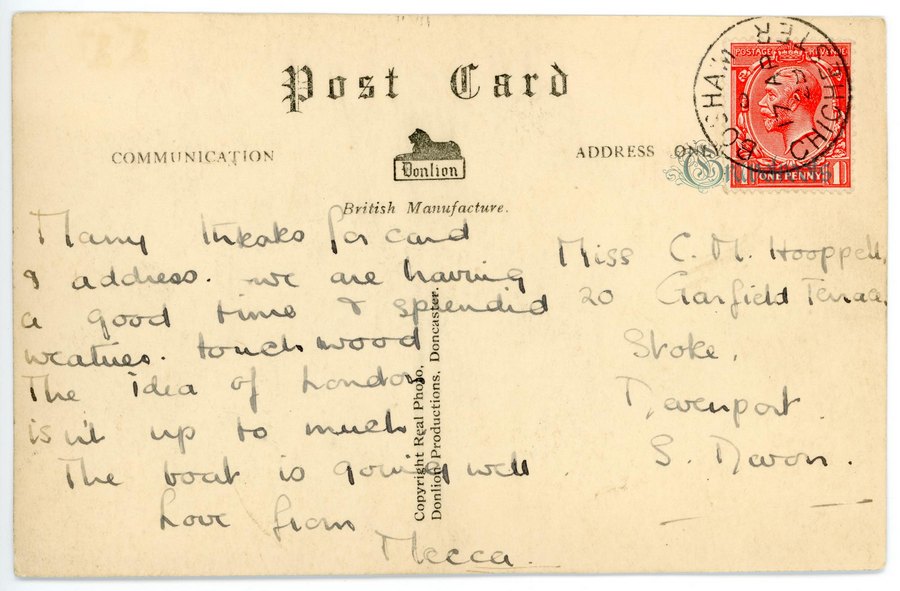 Post Card
COMMUNICATION
ADDRESS ONLY
Donlion
British Manufacture.
POSTAGE REVENUE
ONE PENNY
1
BOSHAM
CHICHESTER
17 AP
29
Many thanks for card
& address. we are having
a good time & splendid
weather. touch wood
The idea of London
isn't up to much
The boat is going well
Love from
Mecca
Miss C. M. Hooppell,
20 Garfield Terrace
Stoke,
Devenport
S. Devon.
Copyright Real Photo,
Donlion Productions, Doncaster.